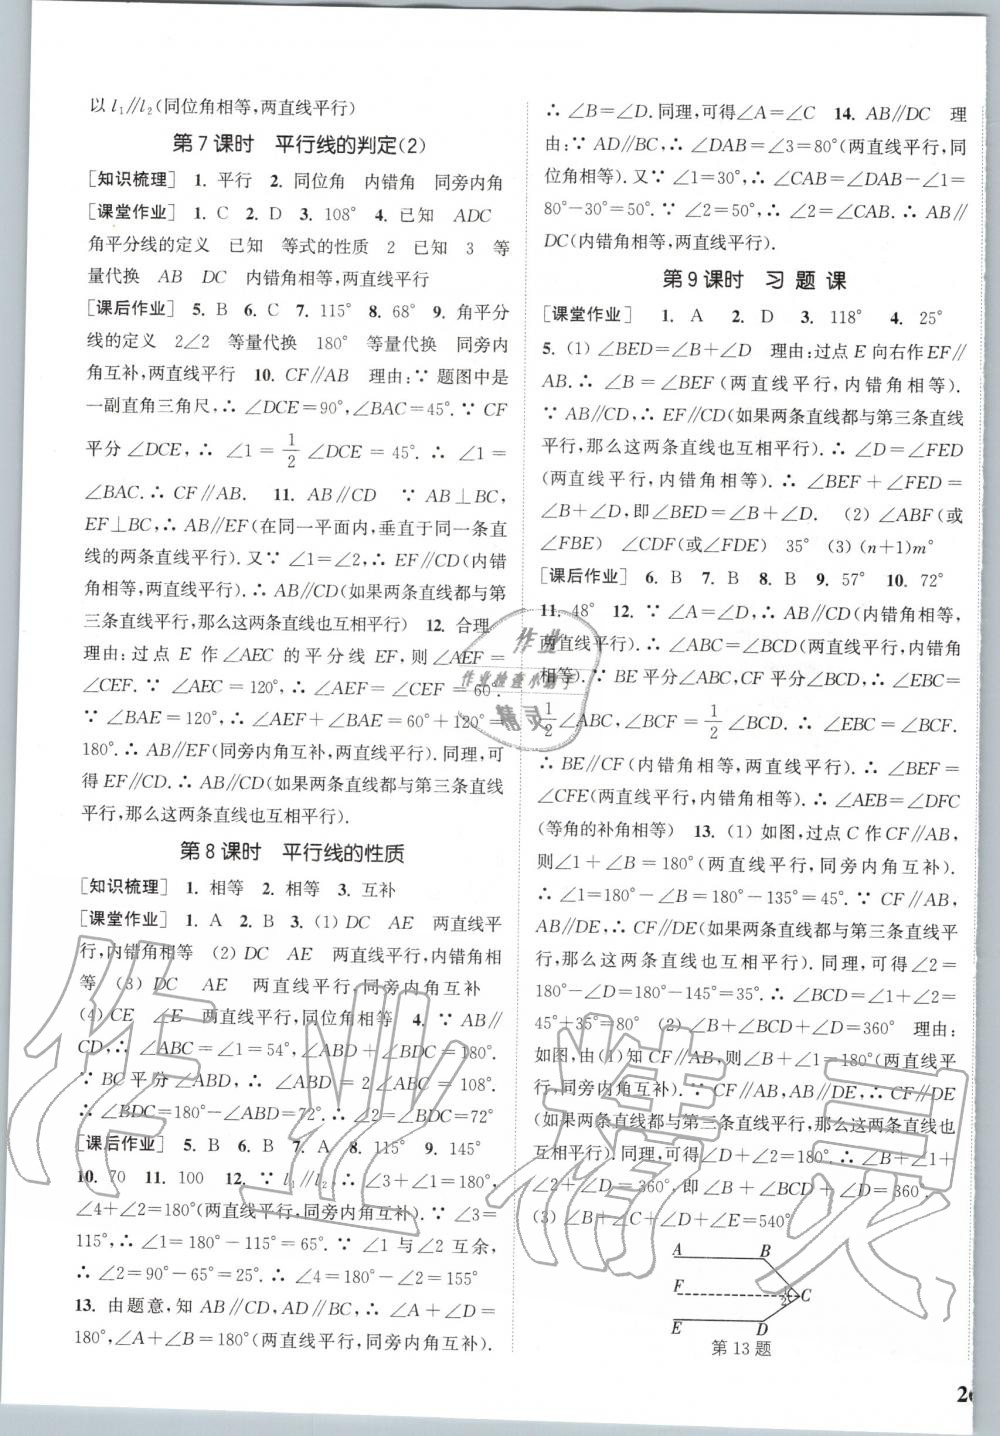 以 l₁∥l₂(同位角相等,两直线平行)
第7课时 平行线的判定(2)
[知识梳理] 1. 平行 2. 同位角 内错角 同旁内角
[课堂作业] 1. C 2. D 3. 108° 4. 已知 ADC
角平分线的定义 已知 等式的性质 2 已知 3 等
量代换 AB DC 内错角相等,两直线平行
[课后作业] 5. B 6. C 7. 115° 8. 68° 9. 角平分
线的定义 2∠2 等量代换 180° 等量代换 同旁内
角互补,两直线平行 10. CF∥AB 理由:∵ 题图中是
一副直角三角尺,∴ ∠DCE=90°,∠BAC=45°.∵ CF
平分∠DCE,∴ ∠1=1/2∠DCE=45°.∴ ∠1=
∠BAC.∴ CF∥AB. 11. AB∥CD ∵ AB⊥BC,
EF⊥BC,∴ AB∥EF(在同一平面内,垂直于同一条直
线的两条直线平行).又∵ ∠1=∠2,∴ EF∥CD(内错
角相等,两直线平行).∴ AB∥CD(如果两条直线都与第
三条直线平行,那么这两条直线也互相平行) 12. 合理
理由:过点 E 作∠AEC 的平分线 EF,则∠AEF=
∠CEF.∵ ∠AEC=120°,∴ ∠AEF=∠CEF=60°.
∵ ∠BAE=120°,∴ ∠AEF+∠BAE=60°+120°=
180°.∴ AB∥EF(同旁内角互补,两直线平行).同理,可
得 EF∥CD.∴ AB∥CD(如果两条直线都与第三条直线
平行,那么这两条直线也互相平行).
第8课时 平行线的性质
[知识梳理] 1. 相等 2. 相等 3. 互补
[课堂作业] 1. A 2. B 3. (1) DC AE 两直线平
行,内错角相等 (2) DC AE 两直线平行,内错角相
等 (3) DC AE 两直线平行,同旁内角互补
(4) CE ∠E 两直线平行,同位角相等 4. ∵ AB∥
CD,∴ ∠ABC=∠1=54°,∠ABD+∠BDC=180°.
∵ BC 平分∠ABD,∴ ∠ABD=2∠ABC=108°.
∴ ∠BDC=180°-∠ABD=72°.∴ ∠2=∠BDC=72°
[课后作业] 5. B 6. B 7. A 8. 115° 9. 145°
10. 70 11. 100 12. ∵ l₁∥l₂,∴ ∠3+∠1=180°,
∠4+∠2=180°(两直线平行,同旁内角互补).∵ ∠3=
115°,∴ ∠1=180°-115°=65°.∵ ∠1 与∠2 互余,
∴ ∠2=90°-65°=25°.∴ ∠4=180°-∠2=155°
13. 由题意,知 AB∥CD,AD∥BC,∴ ∠A+∠D=
180°,∠A+∠B=180°(两直线平行,同旁内角互补).
∴ ∠B=∠D.同理,可得∠A=∠C 14. AB∥DC 理
由:∵ AD∥BC,∴ ∠DAB=∠3=80°(两直线平行,同
位角相等).又∵ ∠1=30°,∴ ∠CAB=∠DAB-∠1=
80°-30°=50°.∵ ∠2=50°,∴ ∠2=∠CAB.∴ AB∥
DC(内错角相等,两直线平行).
第9课时 习题课
[课堂作业] 1. A 2. D 3. 118° 4. 25°
5. (1) ∠BED=∠B+∠D 理由:过点 E 向右作 EF∥
AB.∴ ∠B=∠BEF(两直线平行,内错角相等).
∵ AB∥CD,∴ EF∥CD(如果两条直线都与第三条直线
平行,那么这两条直线也互相平行).∴ ∠D=∠FED
(两直线平行,内错角相等).∴ ∠BEF+∠FED=
∠B+∠D,即∠BED=∠B+∠D. (2) ∠ABF(或
∠FBE) ∠CDF(或∠FDE) 35° (3) (n+1)m°
[课后作业] 6. B 7. B 8. B 9. 57° 10. 72°
11. 48° 12. ∵ ∠A=∠D,∴ AB∥CD(内错角相等,
两直线平行).∴ ∠ABC=∠BCD(两直线平行,内错角
相等).∵ BE 平分∠ABC,CF 平分∠BCD,∴ ∠EBC=
1/2∠ABC,∠BCF=1/2∠BCD.∴ ∠EBC=∠BCF.
∴ BE∥CF(内错角相等,两直线平行).∴ ∠BEF=
∠CFE(两直线平行,内错角相等).∴ ∠AEB=∠DFC
(等角的补角相等) 13. (1) 如图,过点 C 作 CF∥AB,
则∠1+∠B=180°(两直线平行,同旁内角互补).
∴ ∠1=180°-∠B=180°-135°=45°.∵ CF∥AB,
AB∥DE,∴ CF∥DE(如果两条直线都与第三条直线平
行,那么这两条直线也互相平行).同理,可得∠2=
180°-∠D=180°-145°=35°.∴ ∠BCD=∠1+∠2=
45°+35°=80° (2) ∠B+∠BCD+∠D=360° 理由:
如图,由(1)知 CF∥AB,则∠B+∠1=180°(两直线平
行,同旁内角互补).∵ CF∥AB,AB∥DE,∴ CF∥DE
(如果两条直线都与第三条直线平行,那么这两条直线也
互相平行).同理,可得∠D+∠2=180°.∴ ∠B+∠1+
∠2+∠D=360°,即∠B+∠BCD+∠D=360°.
(3) ∠B+∠C+∠D+∠E=540°
A B
F 1 2 C
E D
第13题
作业
作业检查小助手
精灵
作业精灵